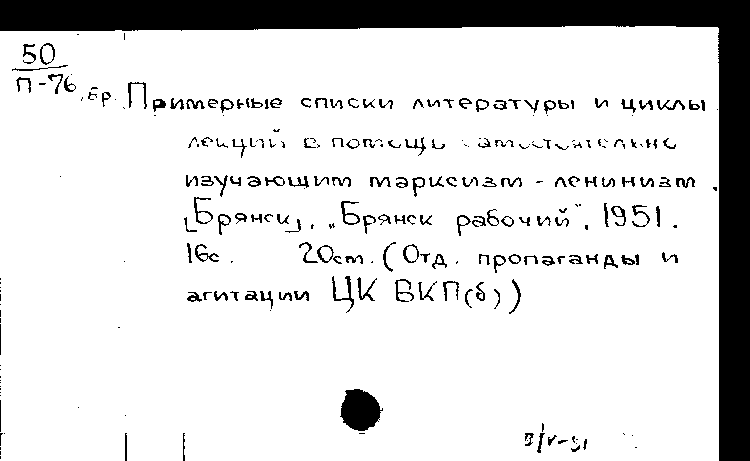 50
П-76, бр.
Примерные списки литературы и циклы
лекций в помощь самостоятельно
изучающим марксизм - ленинизм.
[Брянск], „Брянск рабочий", 1951.
16с. 20см. (Отд. пропаганды и
агитации ЦК ВКП(б))